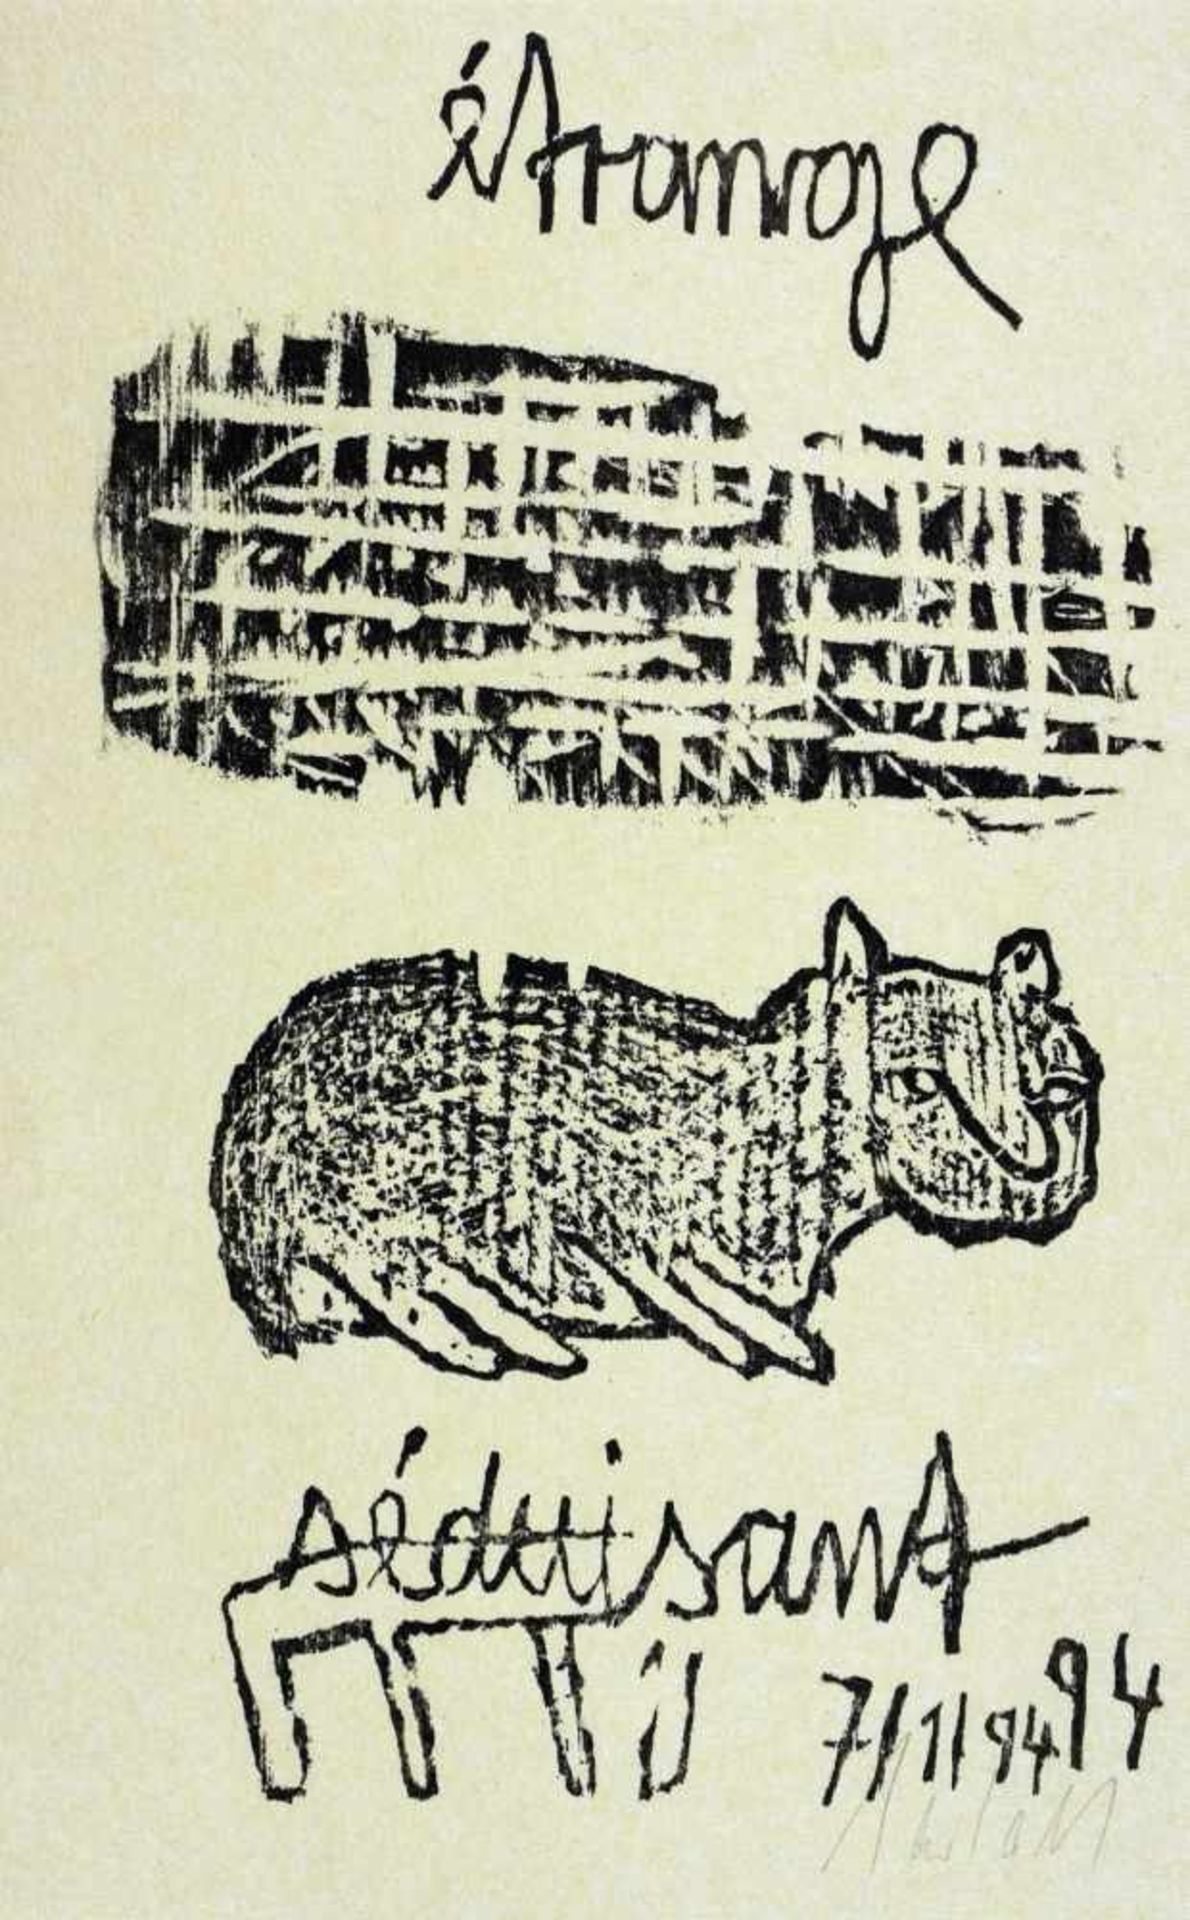 étrange
séduisant
7/1/94 94